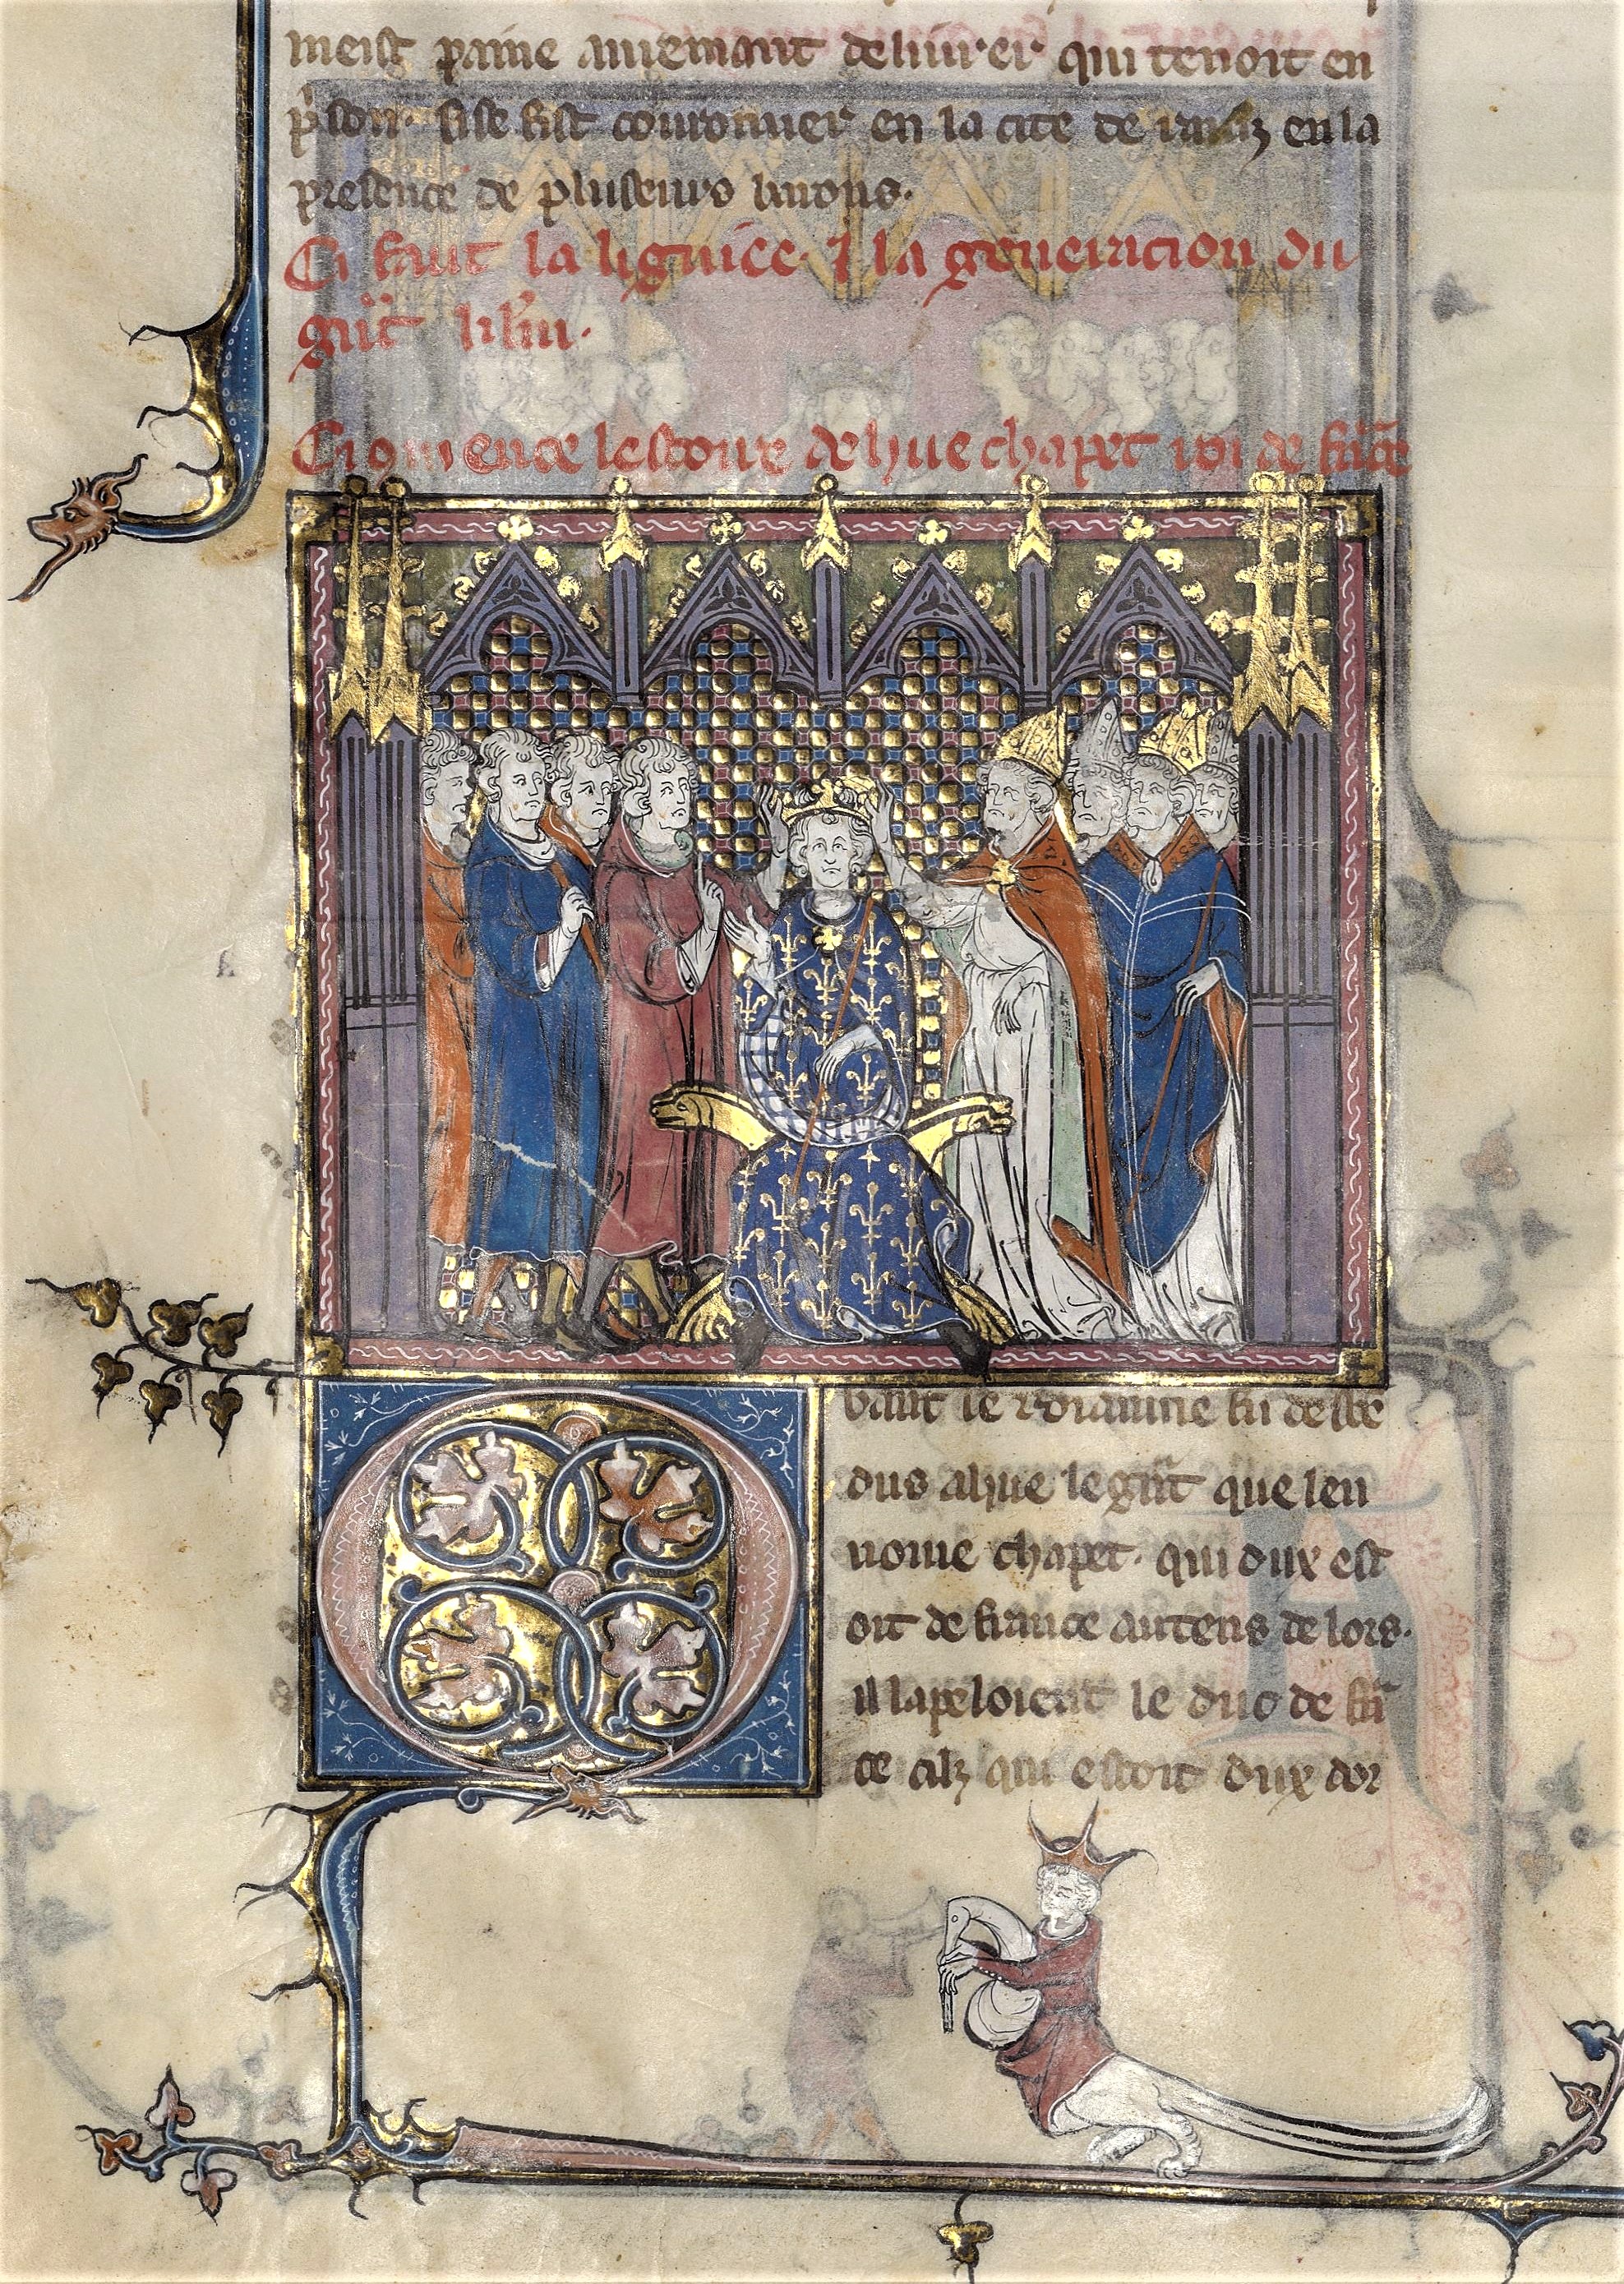 meist paine deliurer qui tenoit en
pͥson. si se fist couronner en la cite de rainz en la
presence de pluseurs barons.
Ci faut la ligniee. ⁊ la generacion du
gͣnt
Ci gmence lestoire de hue chapet roi de frāce
Quant le roiaume fu desce
dus a hue le gͣnt que len
nome chapet. qui dux est
oit de france au tens de lors.
il lapeloient le duc de frā
ce cilz qui estoit dux dor